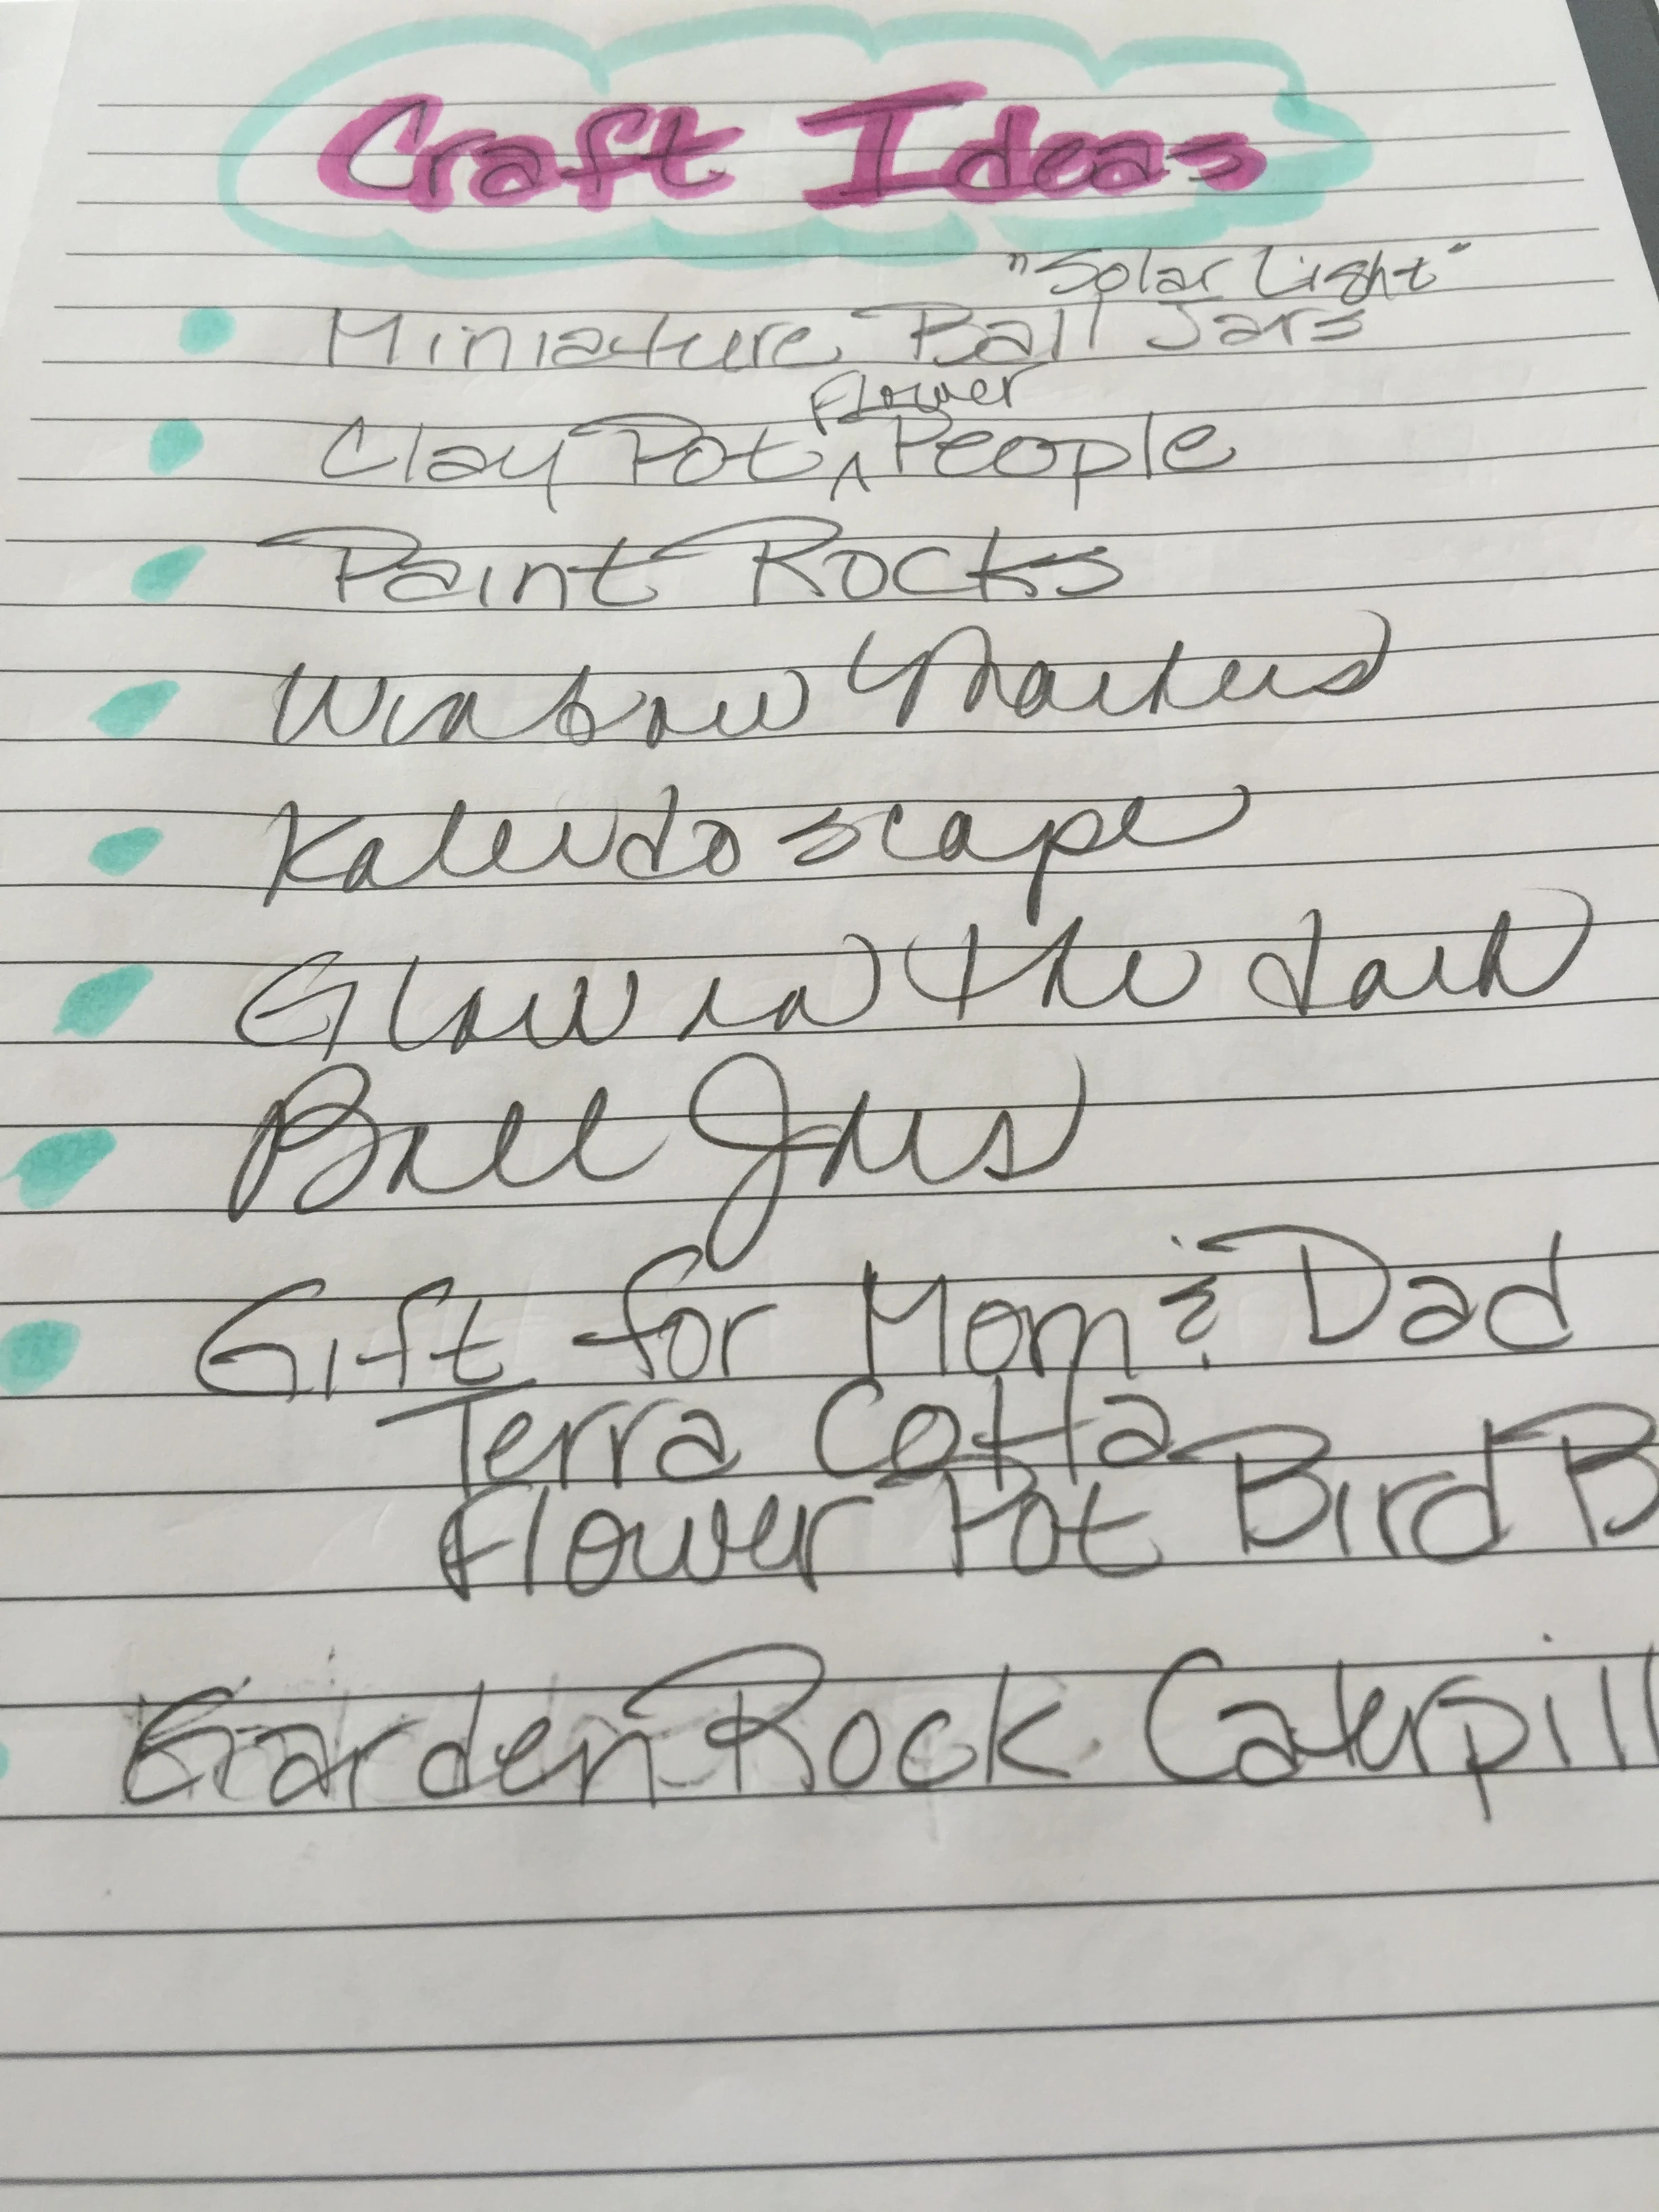 Craft Ideas
"Solar Light"
• Miniature Ball Jars
Flower
• Clay Pot ^ People
• Paint Rocks
• Window Markers
• Kaleidoscape
• Glow in the dark
• Ball Jars
• Gift for Mom & Dad
Terra Cotta
Flower Pot Bird B
• Garden Rock Caterpill